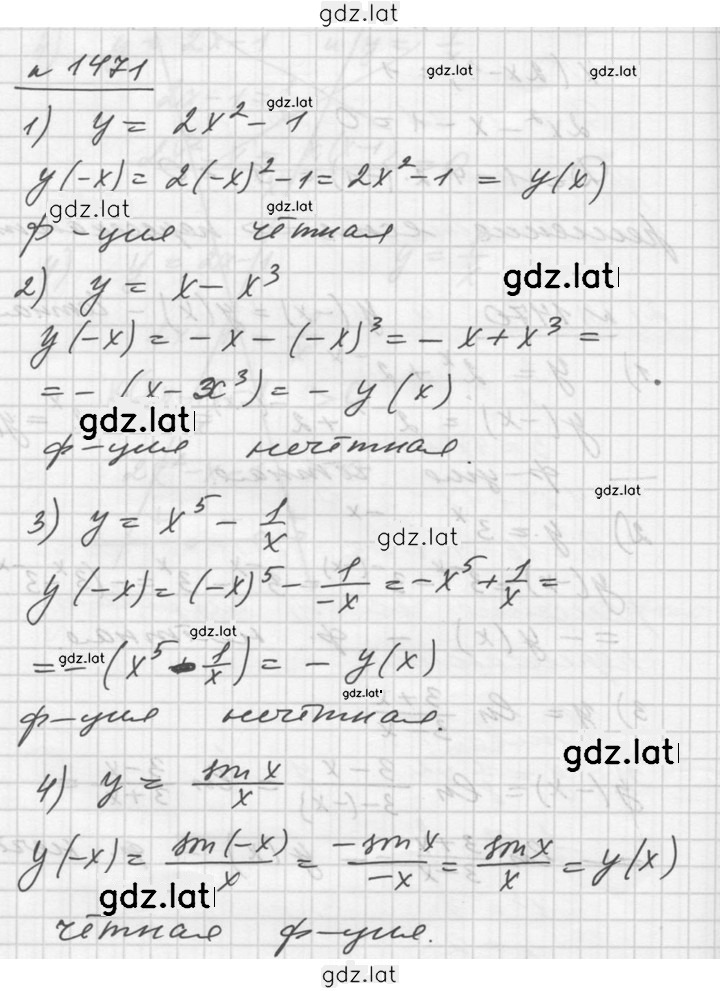 gdz.lat
№ 1471
gdz.lat gdz.lat
gdz.lat
1) y = 2x² - 1
y(-x) = 2(-x)² - 1 = 2x² - 1 = y(x)
gdz.lat gdz.lat
ф-ция чётная
gdz.lat
2) y = x - x³
y(-x) = -x - (-x)³ = -x + x³ =
= -(x - x³) = -y(x).
gdz.lat
ф-ция нечётная.
gdz.lat
3) y = x⁵ - 1/x
gdz.lat
y(-x) = (-x)⁵ - 1/-x = -x⁵ + 1/x =
gdz.lat
gdz.lat
= -(x⁵ - 1/x) = -y(x)
gdz.lat
ф-ция нечётная.
gdz.lat
4) y = sin x/x
y(-x) = sin(-x)/x = -sin x/-x = sin x/x = y(x)
gdz.lat
чётная ф-ция.
gdz.lat